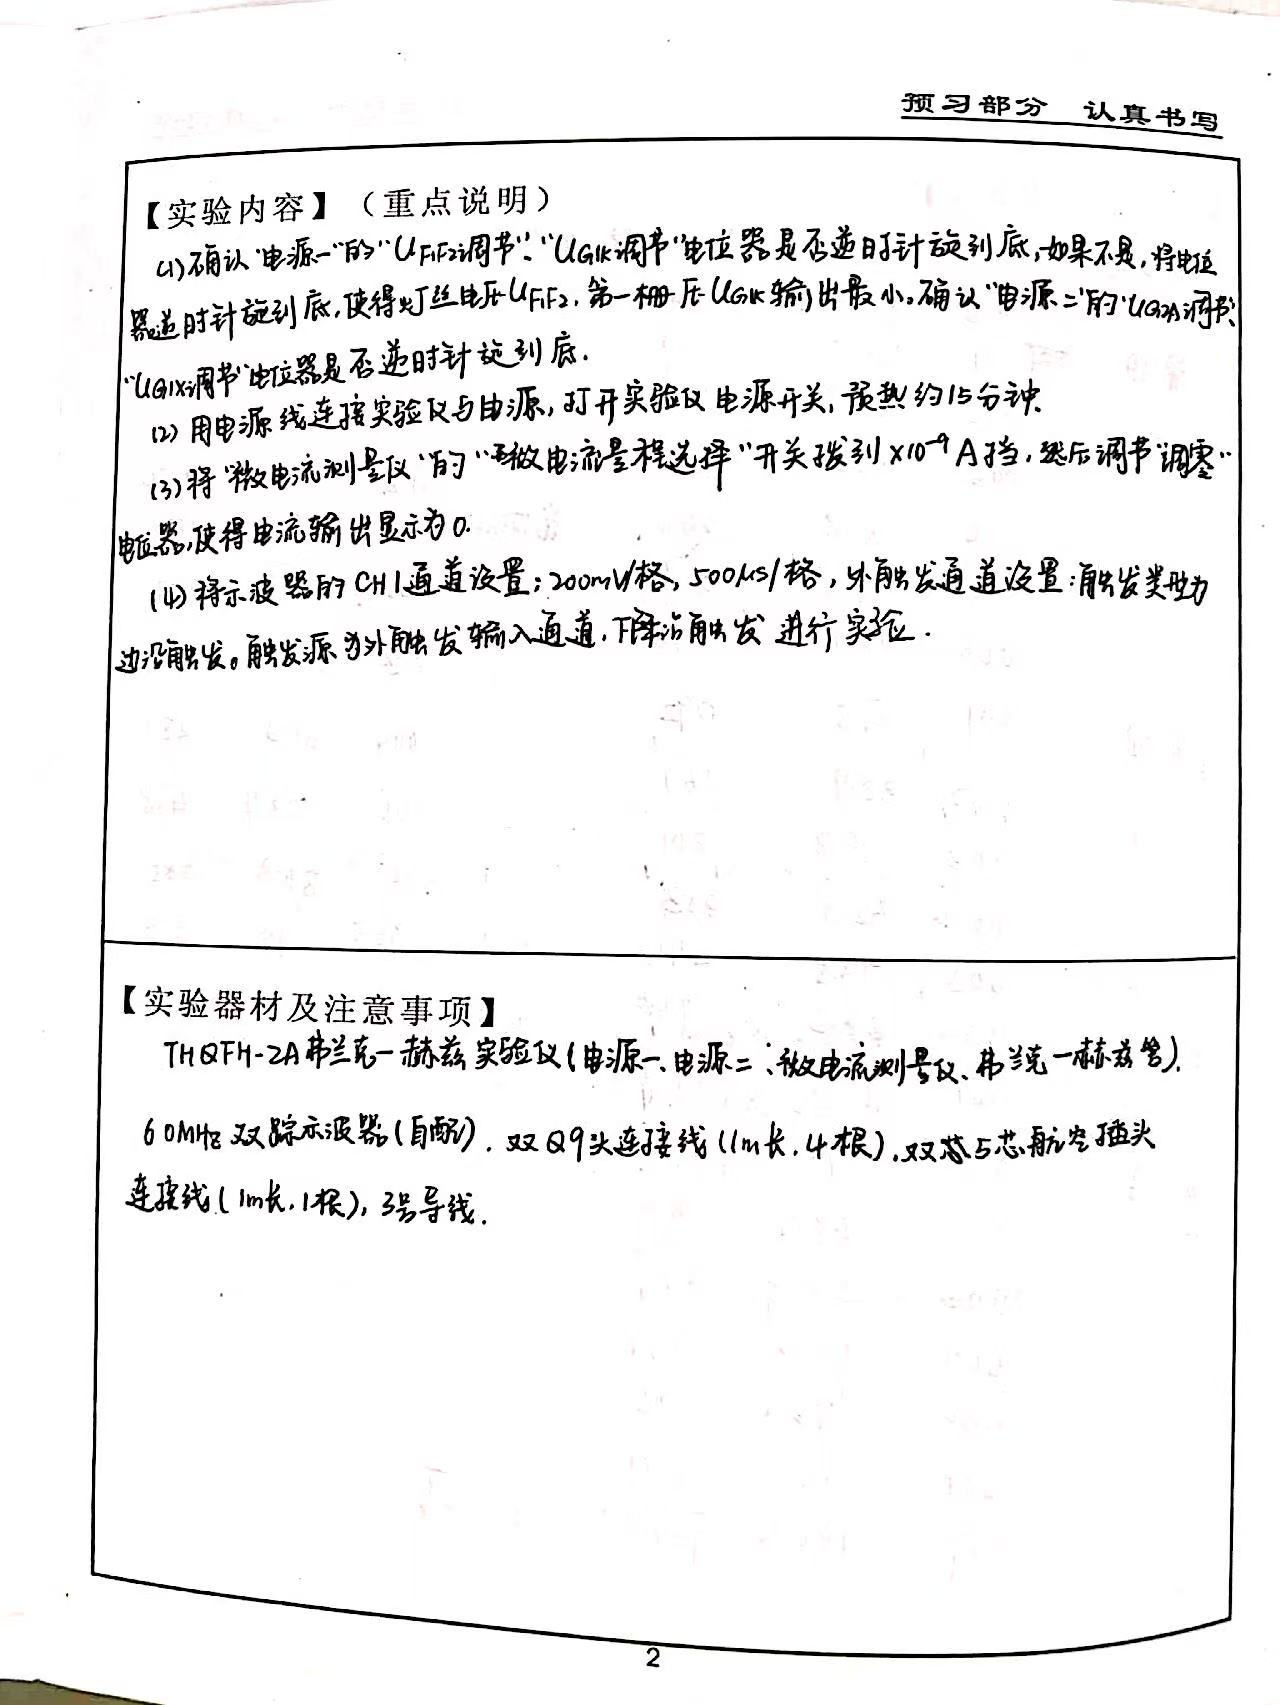 预习部分 认真书写
【实验内容】（重点说明）
(1)确认"电源一"的"UF1F2调节"、"UG1K调节"电位器是否逆时针旋到底,如果不是,将电位
器逆时针旋到底,使得灯丝电压UF1F2,第一栅压UG1K输出最小。确认"电源二"的"UG2A调节"、
"UG1K调节"电位器是否逆时针旋到底.
(2) 用电源线连接实验仪与电源,打开实验仪电源开关,预热约15分钟.
(3)将"微电流测量仪"的"微电流量程选择"开关拨到×10⁻⁹A挡,然后调节"调零"
电位器,使得电流输出显示为0.
(4)将示波器的CH1通道设置:200mV/格,500μs/格,外触发通道设置:触发类型为
边沿触发。触发源为外触发输入通道,下降沿触发 进行实验.
【实验器材及注意事项】
THQFH-2A弗兰克一赫兹实验仪(电源一、电源二、微电流测量仪、弗兰克一赫兹管).
60MHz双踪示波器(自配).双Q9头连接线(1m长.4根).双芯5芯航空插头
连接线(1m长.1根),3号导线.
2